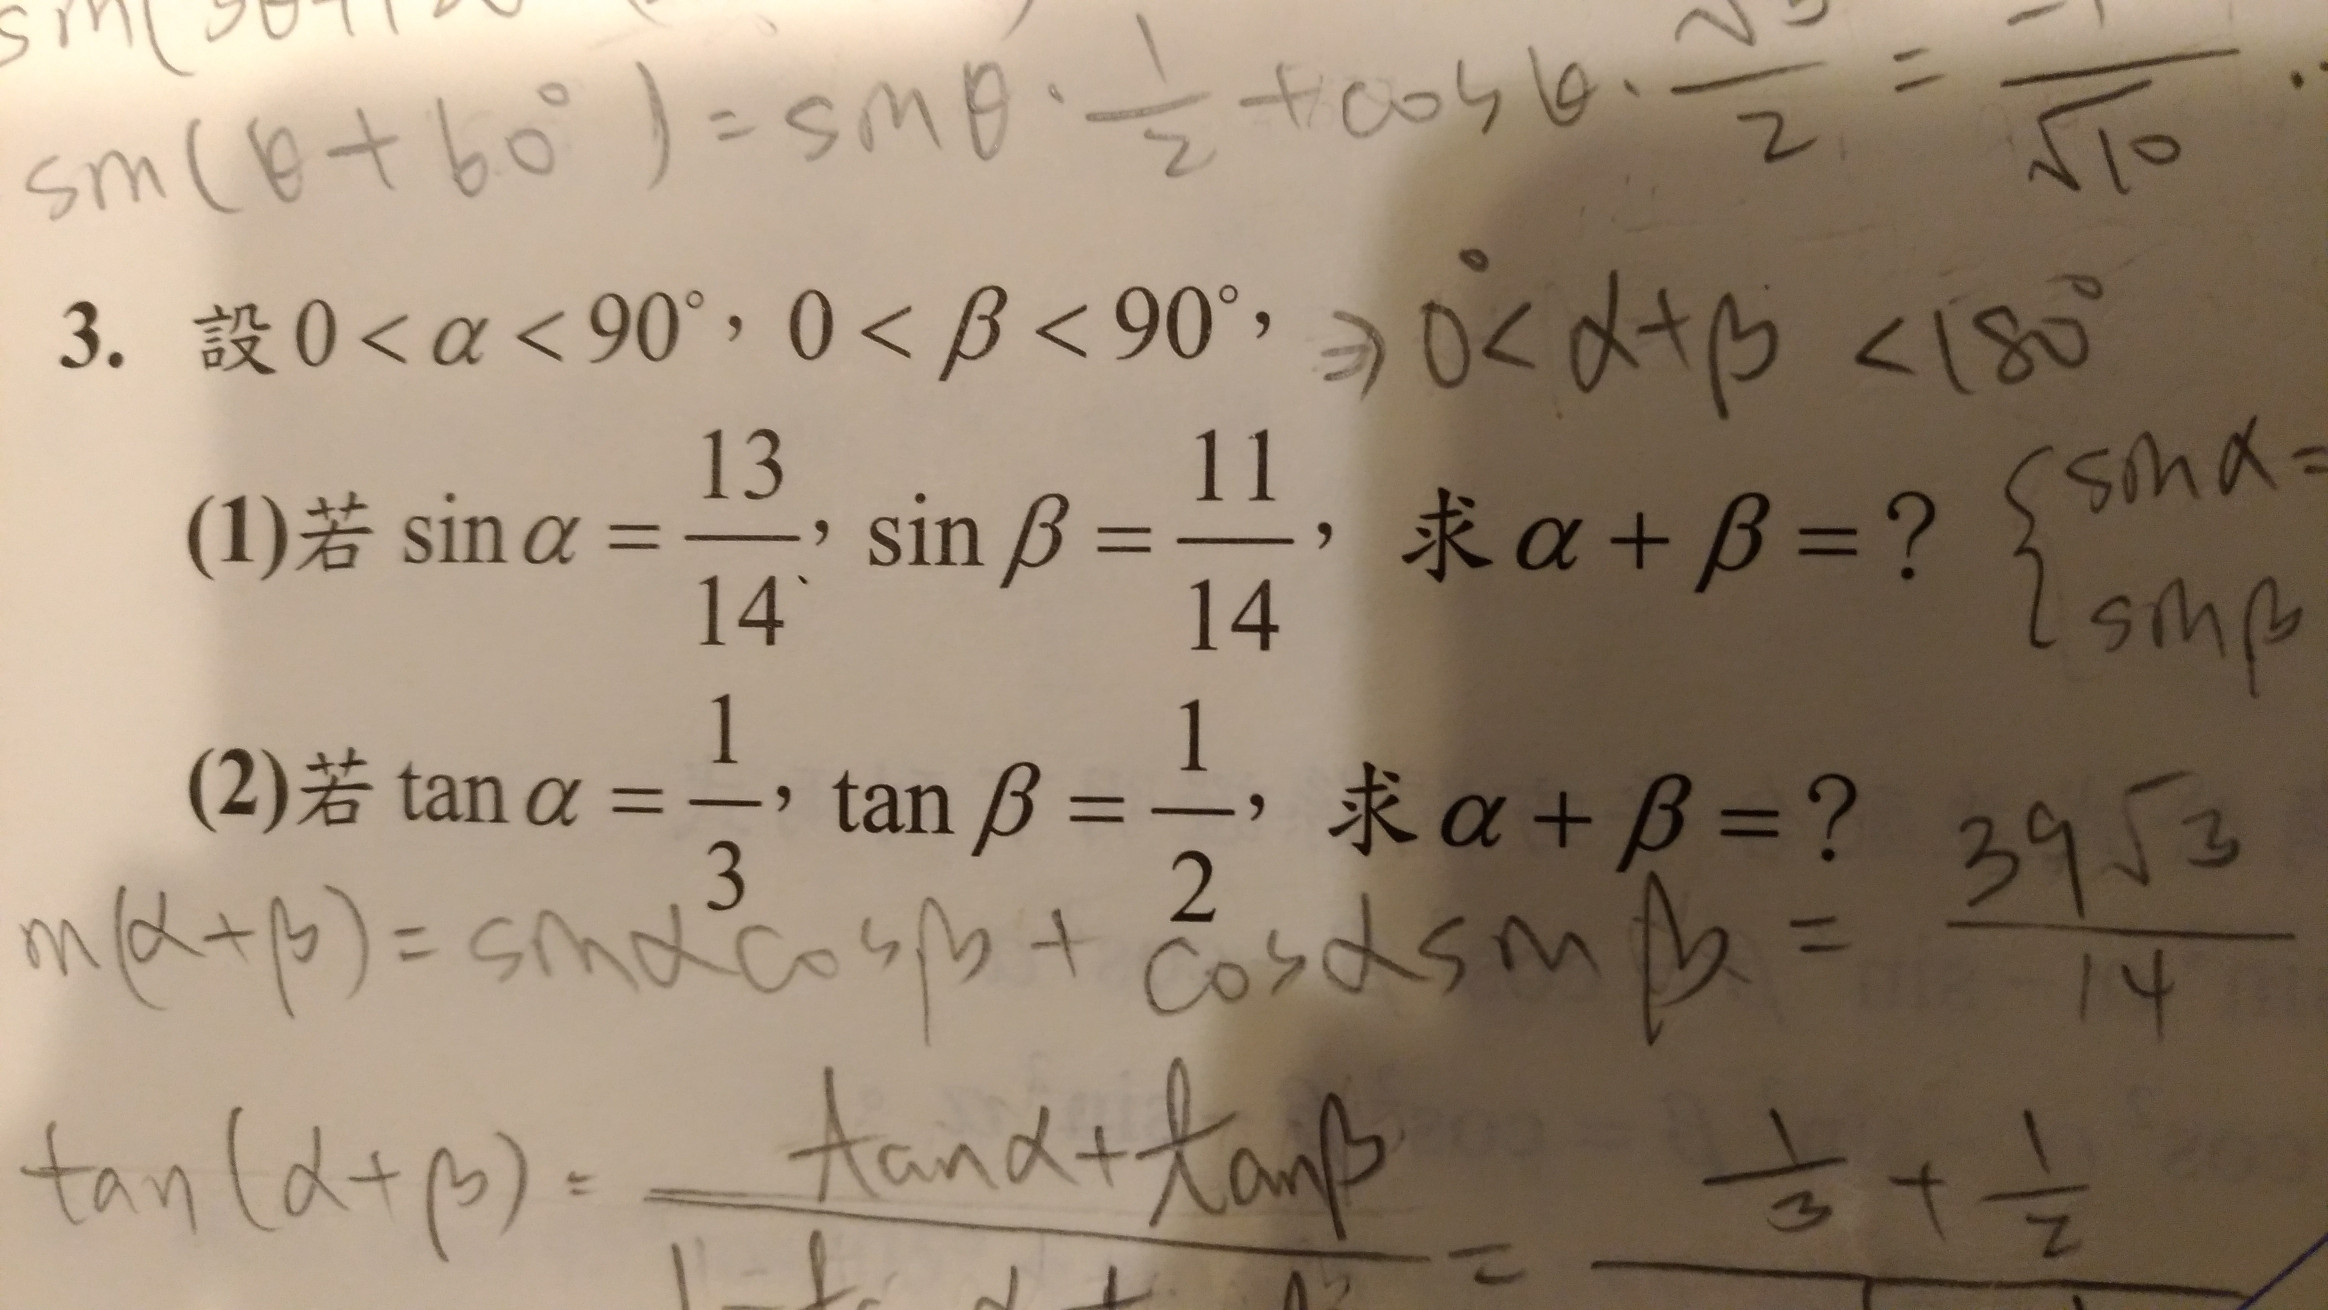 sin(θ+60°)=sinθ·1/2+cosθ·√3/2=-1/√10
3. 設 0 < α < 90°, 0 < β < 90°, ⇒ 0°< α+β <180°
(1)若 sin α = 13/14, sin β = 11/14, 求 α + β = ? { sinα=
sinβ
(2)若 tan α = 1/3, tan β = 1/2, 求 α + β = ?
n(α+β)= sinαcosβ + cosαsinβ = 39√3/14
tan(α+β)= tanα+tanβ = 1/3 + 1/2